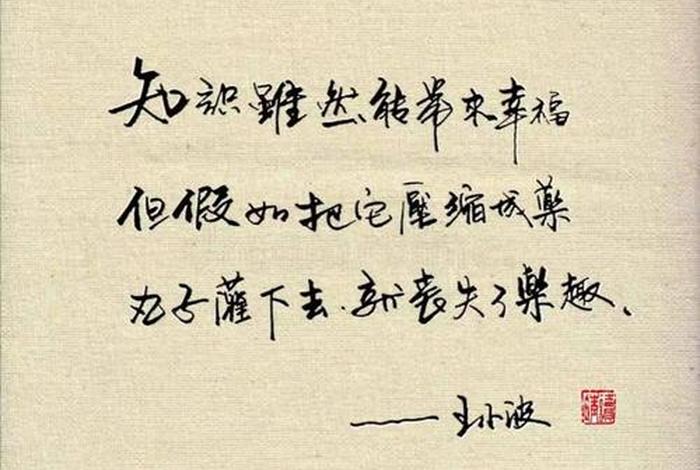 知识雖然能帶来幸福
但假如把它壓缩成藥
丸子灌下去.就丧失了樂趣.
——王小波